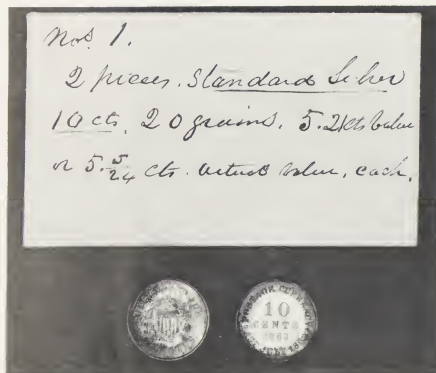 Nos. 1.
2 pieces. Standard Silver
10 cts. 20 grains. 5.21cts value
or 5. 5/24 cts. actual value, each.
POSTAGE CURRENCY
10
CENTS
1863